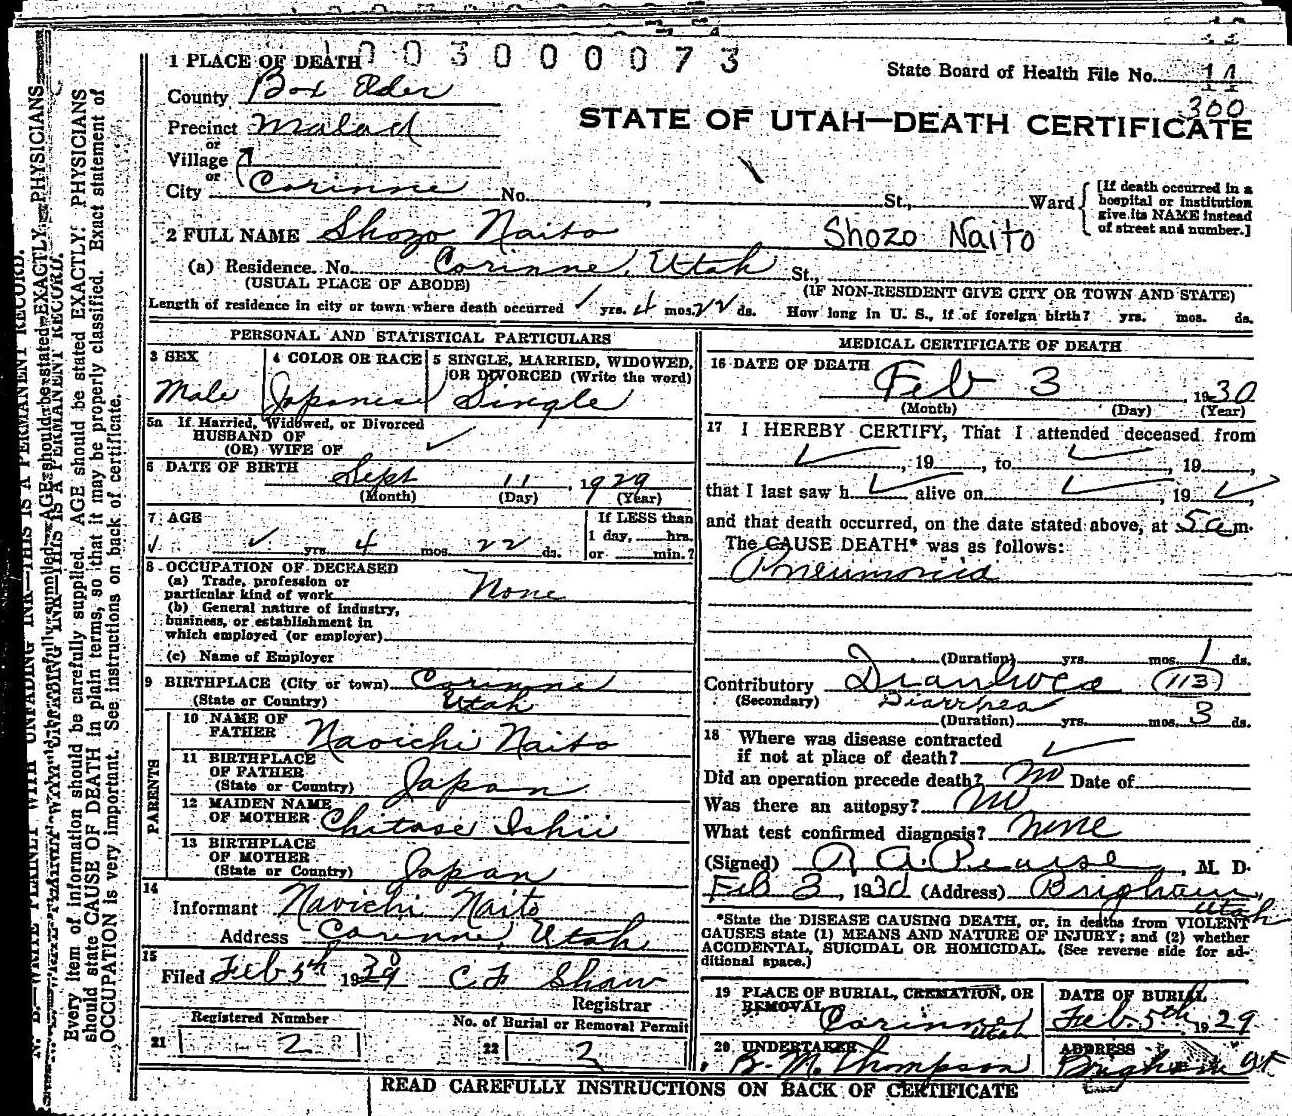 1 PLACE OF DEATH 003000073
State Board of Health File No. 14
County Box Elder
300
Precinct Malad
STATE OF UTAH—DEATH CERTIFICATE
or
Village
or
City Corinne No. , St., Ward
[If death occurred in a hospital or institution give its NAME instead of street and number.]
2 FULL NAME Shozo Naito Shozo Naito
(a) Residence. No. Corinne, Utah St.,
(USUAL PLACE OF ABODE) (IF NON-RESIDENT GIVE CITY OR TOWN AND STATE)
Length of residence in city or town where death occurred yrs. 4 mos. 22 ds. How long in U. S., if of foreign birth? yrs. mos. ds.
PERSONAL AND STATISTICAL PARTICULARS
3 SEX Male
4 COLOR OR RACE Japanese
5 SINGLE, MARRIED, WIDOWED, OR DIVORCED (Write the word) Single
5a If Married, Widowed, or Divorced
HUSBAND OF
(OR) WIFE OF
6 DATE OF BIRTH Sept 11, 1929
(Month) (Day) (Year)
7 AGE yrs. 4 mos. 22 ds.
If LESS than
1 day, hrs.
or min.?
8 OCCUPATION OF DECEASED
(a) Trade, profession or
particular kind of work None
(b) General nature of industry,
business, or establishment in
which employed (or employer)
(c) Name of Employer
9 BIRTHPLACE (City or town) Corinne
(State or Country) Utah
PARENTS
10 NAME OF
FATHER Naoichi Naito
11 BIRTHPLACE
OF FATHER
(State or Country) Japan
12 MAIDEN NAME
OF MOTHER Chitose Ishii
13 BIRTHPLACE
OF MOTHER
(State or Country) Japan
14
Informant Naoichi Naito
Address Corinne, Utah
15
Filed Feb 5th 1930 C F Shaw
Registrar
Registered Number
21 2
No. of Burial or Removal Permit
22 2
MEDICAL CERTIFICATE OF DEATH
16 DATE OF DEATH Feb 3 1930
(Month) (Day) (Year)
17 I HEREBY CERTIFY, That I attended deceased from
, 19 , to , 19 ,
that I last saw h alive on , 19
and that death occurred, on the date stated above, at 5 a m.
The CAUSE DEATH* was as follows:
Pneumonia
(Duration) yrs. mos. 1 ds.
Contributory Diarrhoea (113)
(Secondary) Diarrhea
(Duration) yrs. mos. 3 ds.
18 Where was disease contracted
if not at place of death?
Did an operation precede death? no Date of
Was there an autopsy? no
What test confirmed diagnosis? none
(Signed) R. A. Pearse, M. D.
Feb 3, 1930 (Address) Brigham, Utah
*State the DISEASE CAUSING DEATH, or, in deaths from VIOLENT
CAUSES state (1) MEANS AND NATURE OF INJURY; and (2) whether
ACCIDENTAL, SUICIDAL OR HOMICIDAL. (See reverse side for ad-
ditional space.)
19 PLACE OF BURIAL, CREMATION, OR
REMOVAL Corinne Utah
DATE OF BURIAL
Feb. 5th 1929
20 UNDERTAKER
B. M. Thompson
ADDRESS
Brigham Ut
READ CAREFULLY INSTRUCTIONS ON BACK OF CERTIFICATE
N. B.—WRITE PLAINLY WITH UNFADING INK—THIS IS A PERMANENT RECORD.
Every item of information should be carefully supplied. AGE should be stated EXACTLY. PHYSICIANS
should state CAUSE OF DEATH in plain terms, so that it may be properly classified. Exact statement of
OCCUPATION is very important. See instructions on back of certificate.